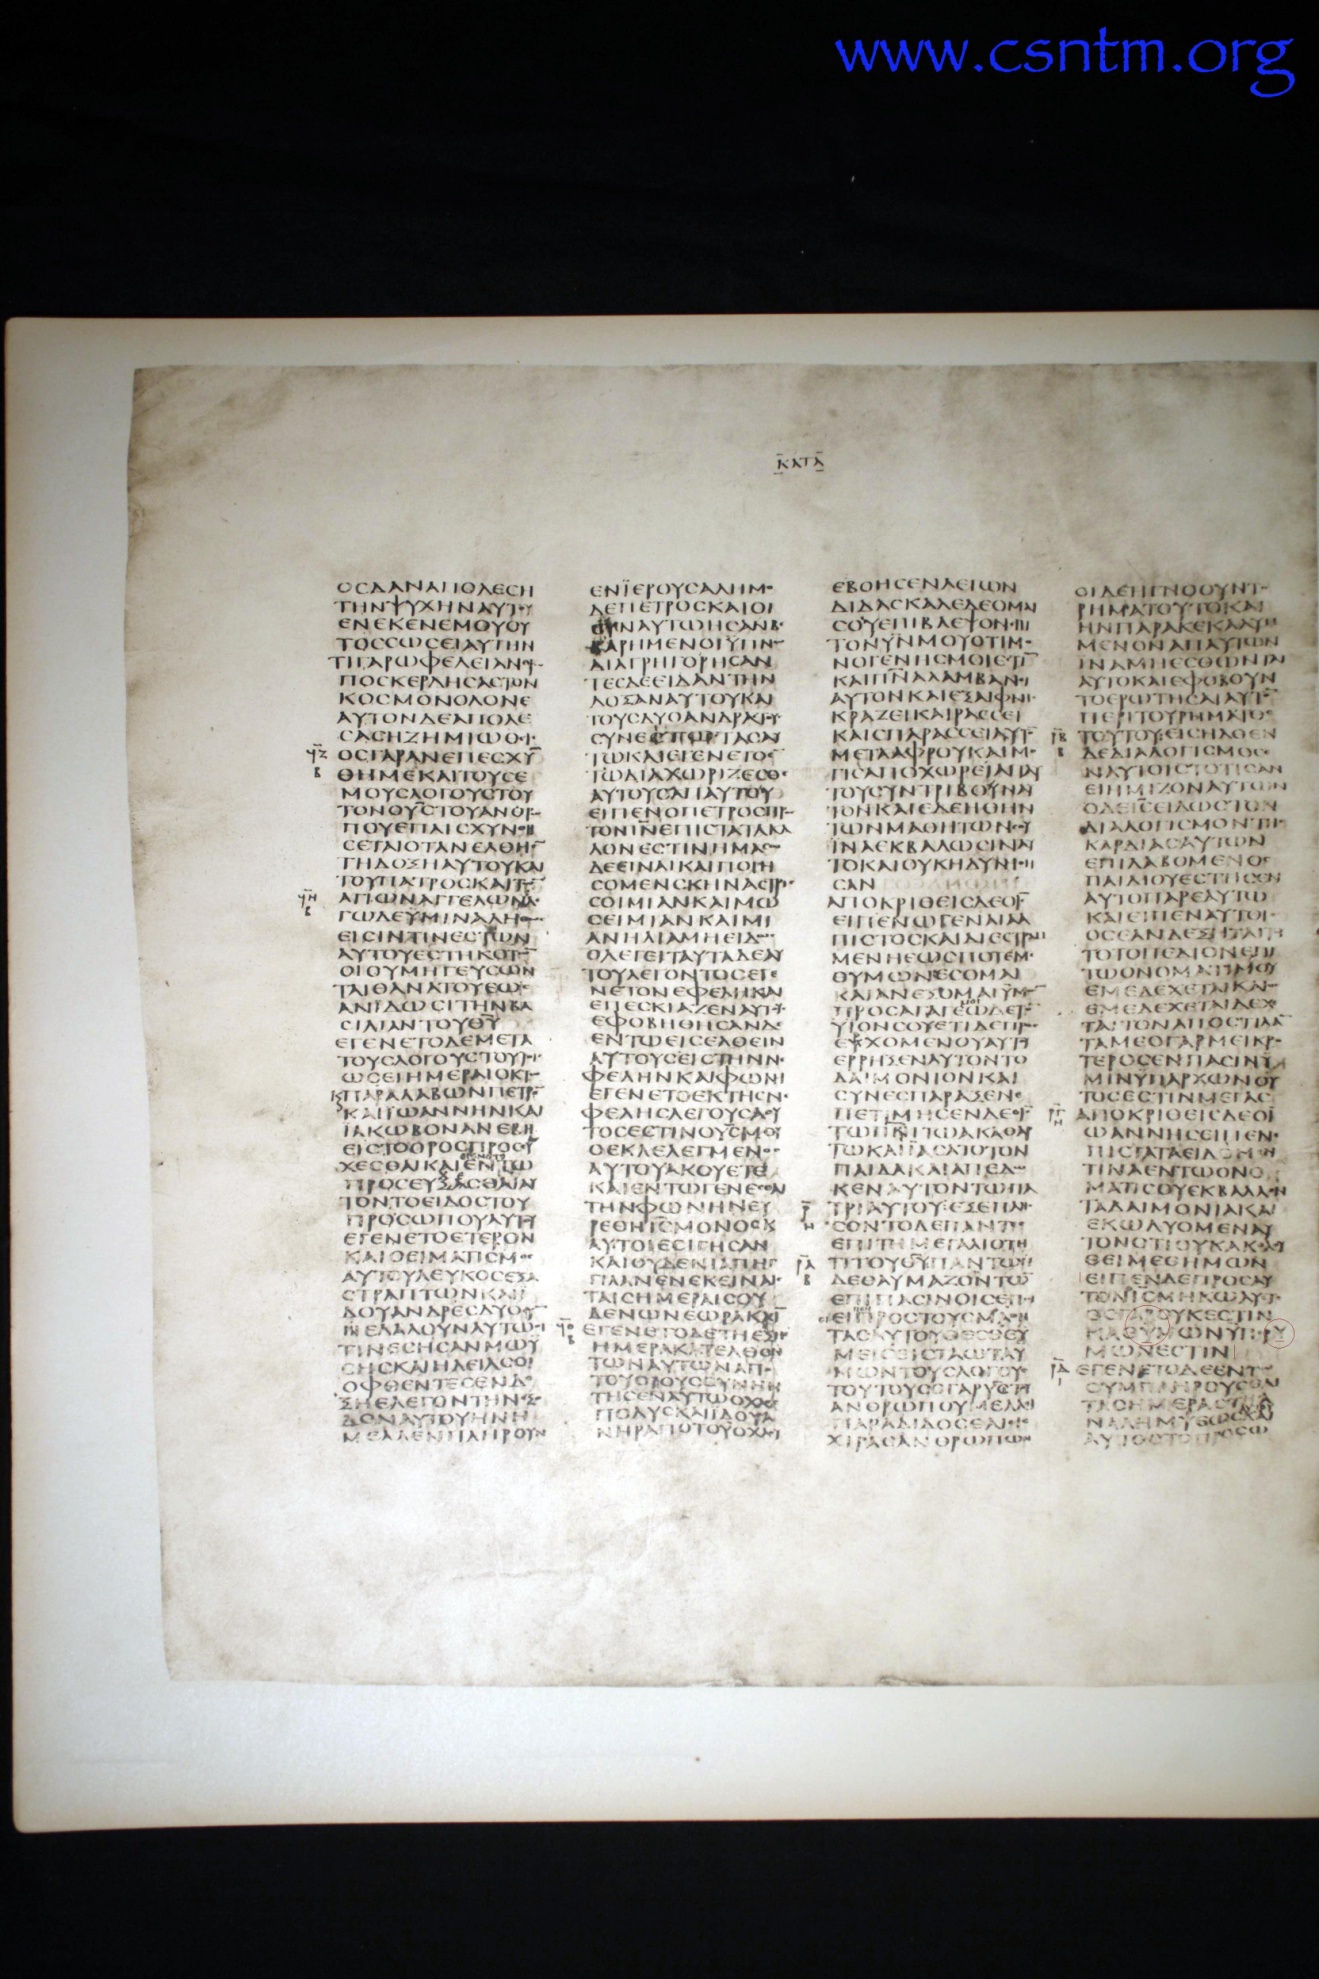 www.csntm.org
ΚΑΤΑ
ΟϹΔΑΝΑΠΟΛΕϹΗ
ΤΗΝΨΥΧΗΝΑΥΤΟΥ
ΕΝΕΚΕΝΕΜΟΥΟΥ
ΤΟϹϹΩϹΕΙΑΥΤΗΝ
ΤΙΓΑΡΩΦΕΛΕΙΑΝΘΡ
ΠΟϹΚΕΡΔΗϹΑϹΤΟΝ
ΚΟϹΜΟΝΟΛΟΝΕ
ΑΥΤΟΝΔΕΑΠΟΛΕ
ϹΑϹΗΖΗΜΙΩΘΙϹ
ΟϹΓΑΡΑΝΕΠΕϹΧΥ
ΘΗΜΕΚΑΙΤΟΥϹΕ
ΜΟΥϹΛΟΓΟΥϹΤΟΥ
ΤΟΝΟΥϹΤΟΥΑΝΘΡ
ΠΟΥΕΠΑΙϹΧΥΝΘΗ
ϹΕΤΑΙΟΤΑΝΕΛΘΗΕ
ΤΗΔΟΞΗΑΥΤΟΥΚΑΙ
ΤΟΥΠΑΤΡΟϹΚΑΙΤΩ
ΑΓΙΩΝΑΓΓΕΛΩΝΛΕ
ΓΩΔΕΥΜΙΝΑΛΗΘΩϹ
ΕΙϹΙΝΤΙΝΕϹΤΩΝ
ΑΥΤΟΥΕϹΤΗΚΟΤΩ
ΟΙΟΥΜΗΓΕΥϹΩΝ
ΤΑΙΘΑΝΑΤΟΥΕΩϹ
ΑΝΙΔΩϹΙΤΗΝΒΑ
ϹΙΛΙΑΝΤΟΥΘΥ
ΕΓΕΝΕΤΟΔΕΜΕΤΑ
ΤΟΥϹΛΟΓΟΥϹΤΟΥΤΟΥϹ
ΩϹΕΙΗΜΕΡΑΙΟΚΤΩ
ΠΑΡΑΛΑΒΩΝΠΕΤΡ
ΚΑΙΙΩΑΝΝΗΝΚΑΙ
ΙΑΚΩΒΟΝΑΝΕΒΗ
ΕΙϹΤΟΟΡΟϹΠΡΟϹΕΥ
ΧΕϹΘΑΙΚΑΙΕΝΤΩ
ΠΡΟϹΕΥΞΑϹΘΑΙΑΥ
ΤΟΝΤΟΕΙΔΟϹΤΟΥ
ΠΡΟϹΩΠΟΥΑΥΤΟΥ
ΕΓΕΝΕΤΟΕΤΕΡΟΝ
ΚΑΙΟΕΙΜΑΤΙϹΜΟϹ
ΑΥΤΟΥΛΕΥΚΟϹΕΞΑ
ϹΤΡΑΠΤΩΝΚΑΙΙ
ΔΟΥΑΝΔΡΕϹΔΥΟϹΥ
ΝΕΛΑΛΟΥΝΑΥΤΩΟΙ
ΤΙΝΕϹΗϹΑΝΜΩΥ
ϹΗϹΚΑΙΗΛΕΙΑϹΟΙ
ΟΦΘΕΝΤΕϹΕΝΔΟ
ΞΗΕΛΕΓΟΝΤΗΝΕΞΟ
ΔΟΝΑΥΤΟΥΗΝΗ
ΜΕΛΛΕΝΠΛΗΡΟΥΝ
ΕΝΪΕΡΟΥϹΑΛΗΜΟ
ΔΕΠΕΤΡΟϹΚΑΙΟΙ
ϹΥΝΑΥΤΩΗϹΑΝΒΕ
ΒΑΡΗΜΕΝΟΙΥΠΝΩ
ΔΙΑΓΡΗΓΟΡΗϹΑΝ
ΤΕϹΔΕΕΙΔΑΝΤΗΝ
ΔΟΞΑΝΑΥΤΟΥΚΑΙ
ΤΟΥϹΔΥΟΑΝΔΡΑϹΤΟΥϹ
ϹΥΝΕϹΤΩΤΑϹΑΥ
ΤΩΚΑΙΕΓΕΝΕΤΟΕ
ΤΩΔΙΑΧΩΡΙΖΕϹΘΑΙ
ΑΥΤΟΥϹΑΠΑΥΤΟΥ
ΕΙΠΕΝΟΠΕΤΡΟϹΠΡ
ΤΟΝΙΝΕΠΙϹΤΑΤΑΚΑ
ΛΟΝΕϹΤΙΝΗΜΑϹΩ
ΔΕΕΙΝΑΙΚΑΙΠΟΙΗ
ϹΟΜΕΝϹΚΗΝΑϹΤΡΙϹ
ϹΟΙΜΙΑΝΚΑΙΜΩ
ϹΕΙΜΙΑΝΚΑΙΜΙ
ΑΝΗΛΙΑΜΗΕΙΔΩϹ
ΟΛΕΓΕΙΤΑΥΤΑΔΕΑΥ
ΤΟΥΛΕΓΟΝΤΟϹΕΓΕ
ΝΕΤΟΝΕΦΕΛΗΚΑΙ
ΕΠΕϹΚΙΑΖΕΝΑΥΤΟΥϹ
ΕΦΟΒΗΘΗϹΑΝΔΕ
ΕΝΤΩΕΙϹΕΛΘΕΙΝ
ΑΥΤΟΥϹΕΙϹΤΗΝΝΕ
ΦΕΛΗΝΚΑΙΦΩΝΗ
ΕΓΕΝΕΤΟΕΚΤΗϹΝΕ
ΦΕΛΗϹΛΕΓΟΥϹΑΟΥ
ΤΟϹΕϹΤΙΝΟΥϹΜΟΥ
ΟΕΚΛΕΛΕΓΜΕΝΟϹ
ΑΥΤΟΥΑΚΟΥΕΤΕ
ΚΑΙΕΝΤΩΓΕΝΕϹΘΑΙ
ΤΗΝΦΩΝΗΝΕΥ
ΡΕΘΗΙϹΜΟΝΟϹΚ
ΑΥΤΟΙΕϹΙΓΗϹΑΝ
ΚΑΙΟΥΔΕΝΙΑΠΗΓ
ΓΙΛΑΝΕΝΕΚΕΙΝΑΙϹ
ΤΑΙϹΗΜΕΡΑΙϹΟΥ
ΔΕΝΩΝΕΩΡΑΚΑ
ΕΓΕΝΕΤΟΔΕΤΗΕΞΗϹ
ΗΜΕΡΑΚΑΤΕΛΘΟΝ
ΤΩΝΑΥΤΩΝΑΠΟ
ΤΟΥΟΡΟΥϹϹΥΝΗΝ
ΤΗϹΕΝΑΥΤΩΟΧΛΟϹ
ΠΟΛΥϹΚΑΙΙΔΟΥΑ
ΝΗΡΑΠΟΤΟΥΟΧΛΟΥ
ΕΒΟΗϹΕΝΛΕΓΩΝ
ΔΙΔΑϹΚΑΛΕΔΕΟΜΑΙ
ϹΟΥΕΠΙΒΛΕΨΟΝΕΠΙ
ΤΟΝΥΝΜΟΥΟΤΙΜΟ
ΝΟΓΕΝΗϹΜΟΙΕϹΤΙ
ΚΑΙΠΝΑΛΑΜΒΑΝΙ
ΑΥΤΟΝΚΑΙΕΞΑΙΦΝΗϹ
ΚΡΑΖΕΙΚΑΙΡΑϹϹΕΙ
ΚΑΙϹΠΑΡΑϹϹΕΙΑΥΤΟ
ΜΕΤΑΑΦΡΟΥΚΑΙΜΟ
ΓΙϹΑΠΟΧΩΡΕΙΑΠΑΥ
ΤΟΥϹΥΝΤΡΙΒΟΥΝΑΥ
ΤΟΝΚΑΙΕΔΕΗΘΗΝ
ΤΩΝΜΑΘΗΤΩΝϹΟΥ
ΙΝΑΕΚΒΑΛΩϹΙΝΑΥ
ΤΟΚΑΙΟΥΚΗΔΥΝΗΘΗ
ϹΑΝ
ΑΠΟΚΡΙΘΕΙϹΔΕΟΙϹ
ΕΙΠΕΝΩΓΕΝΑΙΑΑ
ΠΙϹΤΟϹΚΑΙΔΙΕϹΤΡΑΜ
ΜΕΝΗΕΩϹΠΟΤΕΜΕ
ΘΥΜΩΝΕϹΟΜΑΙ
ΚΑΙΑΝΕΞΟΜΑΙΥΜΩ
ΠΡΟϹΑΓΑΓΕΩΔΕΤΟ
ΥΙΟΝϹΟΥΕΤΙΔΕΠΡΟϹ
ΕΡΧΟΜΕΝΟΥΑΥΤΟΥ
ΕΡΡΗΞΕΝΑΥΤΟΝΤΟ
ΔΑΙΜΟΝΙΟΝΚΑΙ
ϹΥΝΕϹΠΑΡΑΞΕΝΕ
ΠΕΤΙΜΗϹΕΝΔΕΟΙϹ
ΤΩΠΝΙΤΩΑΚΑΘΑΡ
ΤΩΚΑΙΙΑϹΑΤΟΤΟΝ
ΠΑΙΔΑΚΑΙΑΠΕΔΩ
ΚΕΝΑΥΤΟΝΤΩΠΑ
ΤΡΙΑΥΤΟΥΕΞΕΠΛΗϹ
ϹΟΝΤΟΔΕΠΑΝΤΕϹ
ΕΠΙΤΗΜΕΓΑΛΙΟΤΗ
ΤΙΤΟΥΘΥΠΑΝΤΩΝ
ΔΕΘΑΥΜΑΖΟΝΤΩ
ΕΠΙΠΑΣΙΝΟΙϹΕΠΟΙΕΙ
ΕΙΠΡΟϹΤΟΥϹΜΑΘΗ
ΤΑϹΑΥΤΟΥΘΕϹΘΕΥ
ΜΕΙϹΕΙϹΤΑΩΤΑΥ
ΜΩΝΤΟΥϹΛΟΓΟΥϹ
ΤΟΥΤΟΥϹΟΓΑΡΥϹΤΟΥ
ΑΝΘΡΩΠΟΥΜΕΛΛΙ
ΠΑΡΑΔΙΔΟϹΘΑΙΕΙϹ
ΧΙΡΑϹΑΝΘΡΩΠΩΝ
ΟΙΔΕΗΓΝΟΟΥΝΤΟ
ΡΗΜΑΤΟΥΤΟΚΑΙ
ΗΝΠΑΡΑΚΕΚΑΛΥΜ
ΜΕΝΟΝΑΠΑΥΤΩΝ
ΙΝΑΜΗΕϹΘΩΝΤΑΙ
ΑΥΤΟΚΑΙΕΦΟΒΟΥΝ
ΤΟΕΡΩΤΗϹΑΙΑΥΤΟ
ΠΕΡΙΤΟΥΡΗΜΑΤΟϹ
ΤΟΥΤΟΥΕΙϹΗΛΘΕΝ
ΔΕΔΙΑΛΟΓΙϹΜΟϹΕ
ΝΑΥΤΟΙϹΤΟΤΙϹΑΝ
ΕΙΗΜΙΖΩΝΑΥΤΩΝ
ΟΔΕΙϹΕΙΔΩϹΤΟΝ
ΔΙΑΛΟΓΙϹΜΟΝΤΗϹ
ΚΑΡΔΙΑϹΑΥΤΩΝ
ΕΠΙΛΑΒΟΜΕΝΟϹ
ΠΑΙΔΙΟΥΕϹΤΗϹΕΝ
ΑΥΤΟΠΑΡΕΑΥΤΩ
ΚΑΙΕΙΠΕΝΑΥΤΟΙϹ
ΟϹΕΑΝΔΕΞΗΤΑΙΤΟΥ
ΤΟΤΟΠΕΔΙΟΝΕΠΙ
ΤΩΟΝΟΜΑΤΙΜΟΥ
ΕΜΕΔΕΧΕΤΑΙΚΑΙΟϹ
ΕΜΕΔΕΧΕΤΑΙΔΕΧΕ
ΤΑΙΤΟΝΑΠΟϹΤΙΛΑ
ΤΑΜΕΟΓΑΡΜΕΙΚΡΟ
ΤΕΡΟϹΕΝΠΑϹΙΝΥ
ΜΙΝΥΠΑΡΧΩΝΟΥ
ΤΟϹΕϹΤΙΝΜΕΓΑϹ
ΑΠΟΚΡΙΘΕΙϹΔΕΟΙ
ΩΑΝΝΗϹΕΙΠΕΝΕ
ΠΙϹΤΑΤΑΕΙΔΟΜΕΝ
ΤΙΝΑΕΝΤΩΟΝΟ
ΜΑΤΙϹΟΥΕΚΒΑΛΛΟΝ
ΤΑΔΑΙΜΟΝΙΑΚΑΙ
ΕΚΩΛΥΟΜΕΝΑΥ
ΤΟΝΟΤΙΟΥΚΑΚΟΛΟΥ
ΘΕΙΜΕΘΗΜΩΝ
ΕΙΠΕΝΔΕΠΡΟϹΑΥ
ΤΟΝΙϹΜΗΚΩΛΥΕΤΕ
ΟϹΓΑΡΟΥΚΕϹΤΙΝ
ΚΑΘΥΜΩΝΥΠΕΡΥ
ΜΩΝΕϹΤΙΝ
ΕΓΕΝΕΤΟΔΕΕΝΤΩ
ϹΥΜΠΛΗΡΟΥϹΘΑΙ
ΤΑϹΗΜΕΡΑϹΤΗϹΑ
ΝΑΛΗΜΨΕΩϹΚΑΙ
ΑΥΤΟϹΤΟΠΡΟϹΩ